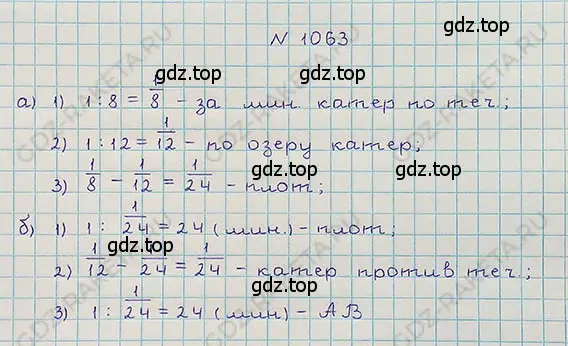 N 1063
gdz.top gdz.top
а) 1) 1 : 8 = 1/8 - за мин. катер по теч.;
2) 1 : 12 = 1/12 - по озеру катер;
3) 1/8 - 1/12 = 1/24 - плот;
gdz.top gdz.top
б) 1) 1 : 1/24 = 24 (мин.) - плот;
gdz.top
2) 1/12 - 1/24 = 1/24 - катер против теч.;
3) 1 : 1/24 = 24 (мин) - АВ
gdz.top gdz.top
GDZ-RAKETA.RU